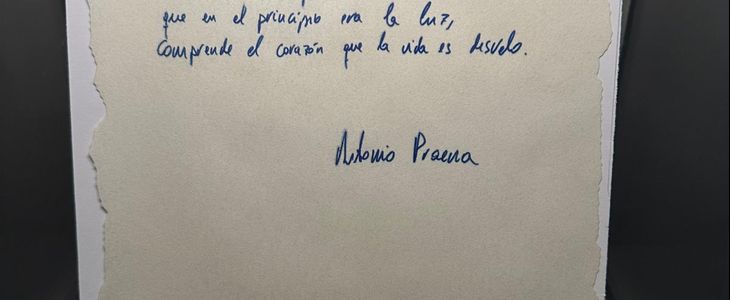 que en el principio era la luz,
comprende el corazón que la vida es desvelo.
Antonio Praena